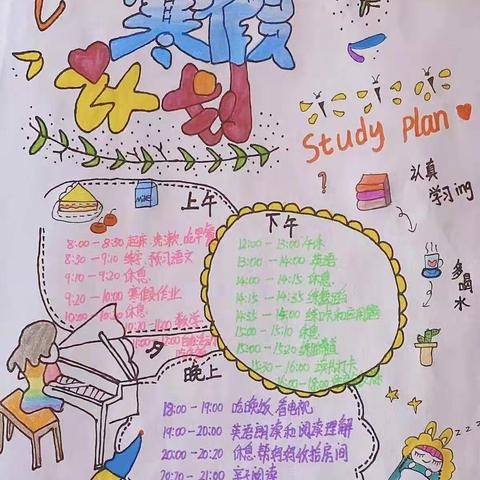 寒假
计划
Study plan
认真
学习ing
多喝
水
上午
8:00 — 8:30 起床、洗漱、吃早餐
8:30 — 9:10 预习语文
9:10 — 9:20 休息
9:20 — 10:00 寒假作业
10:00 — 10:20 休息
10:20 — 11:00 数学
下午
12:00 — 13:00 午休
13:00 — 14:00 英语
14:00 — 14:15 休息
14:15 — 14:35
15:00 — 15:10 休息
15:20
— 16:00 打卡
夕
晚上
18:00 — 19:00 吃晚饭、看电视
19:00 — 20:00 英语朗读和阅读理解
20:00 — 20:20 休息、帮妈妈收拾房间
20:20 — 21:00 阅读
zzz